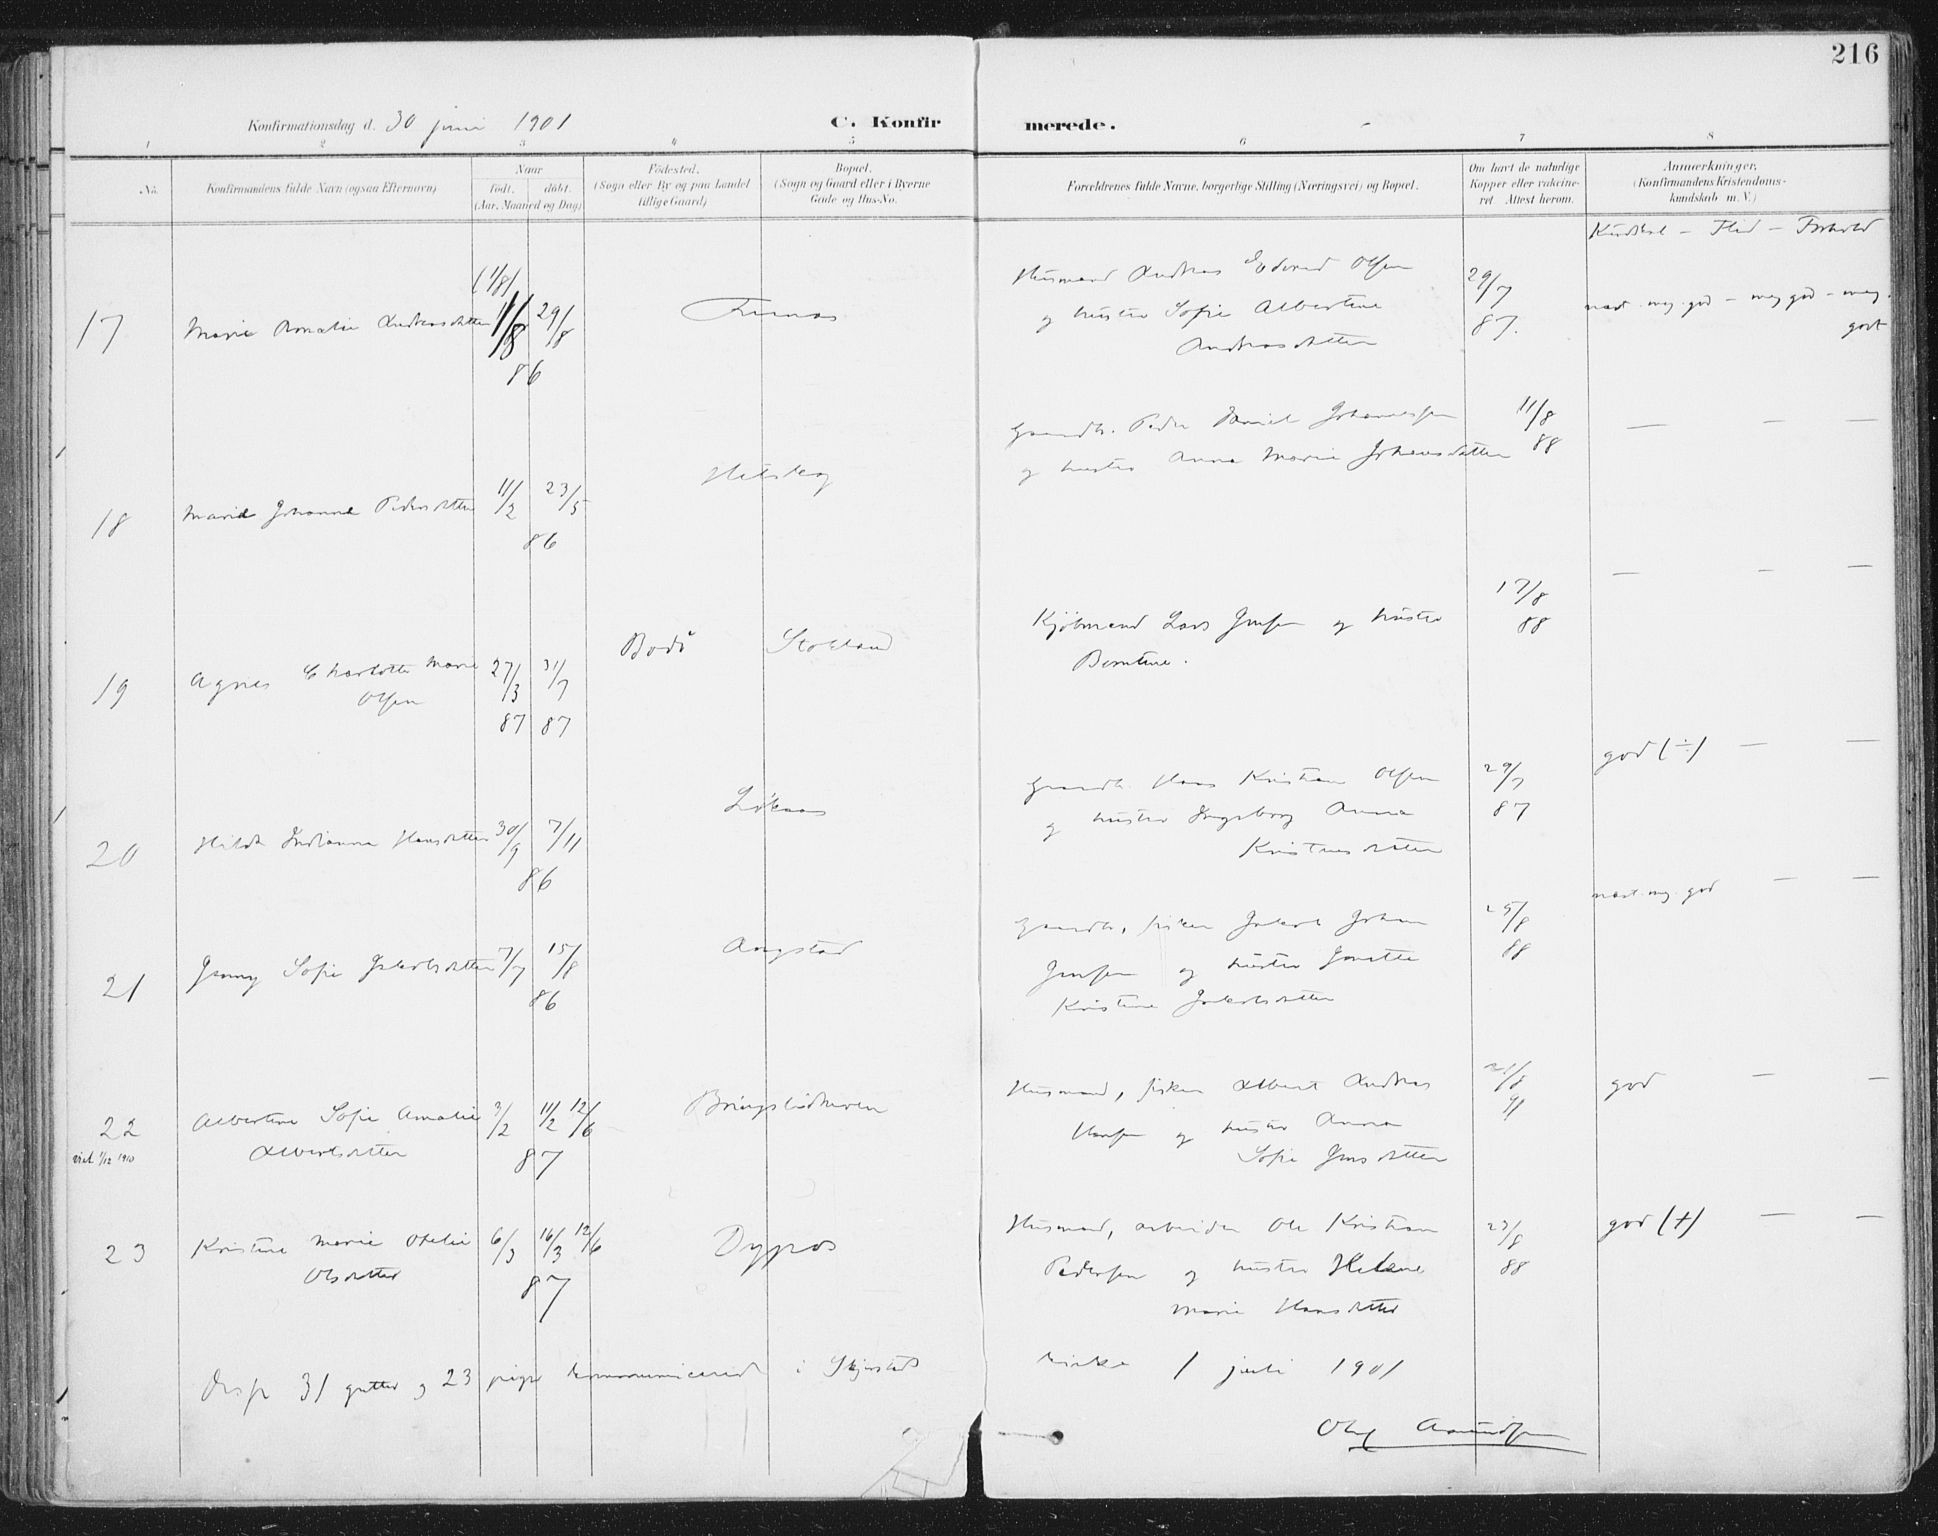 216
Konfirmationsdag d. 30 juni 1901
C. Konfirmerede.
1 2 3 4 5 6 7 8
No.
Konfirmandens fulde Navn (ogsaa Efternavn)
Naar
født. døbt.
(Aar, Maaned og Dag)
Fødested.
(Sogn eller By og paa Landet
tillige Gaard)
Bopæl.
(Sogn og Gaard eller i Byerne
Gade og Hus-No.
Forældrenes fulde Navne, borgerlige Stilling (Næringsvei) og Bopæl.
Om havt de naturlige
Kopper eller vakcine-
ret. Attest herom.
Anmærkninger.
(Konfirmandens Kristendoms-
kundskab m. V.)
Kundskab – Flid – Forhold
17 Marie Amalie Andreasdatter (1/8) 11/8 29/8
86
Husmand Andreas Edvard Olsen
og hustru Sofie Albertine
Andreasdatter
29/7
87.
næst meg. god – meg god – meg.
godt
18 Marie Johanne Pedersdatter 11/2 23/5
86
Gaardb. Peder Daniel Johannessen
og hustru Anna Marie Johansdatter
11/8
88
— — —
19 Agnes Charlotte Marie
Olsen
27/3 31/7
87 87
Bodø
Kjøbmand Lars Jensen og hustru
Berntine.
17/8
88
— — —
20 Hilda Indianna Hansdatter 30/9 7/11
86
Løkaas
Gaardb. Hans Kristian Olsen
og hustru Ingeborg Anna
29/7
87
god (÷) — —
21 Jenny Sofie Jakobsdatter 7/7 15/8
86
Gaardb., fisker Jakob Johan
Jensen og hustru Jonette
Kristine Jakobsdatter
25/8
88
næst. meg. god — —
22 Albertine Sofie Amalie
Albertsdatter
viet 1/12 1910
3/2 11/2 12/6
87
Husmand, fisker Albert Andreas
Hansen og hustru Anna
Sofie Jensdatter
21/8
91
god — —
23 Kristine Marie Otelie
Olsdatter
6/3 16/3 12/6
87
Husmand, arbeider Ole Kristian
Pedersen og hustru Helene
Marie Hansdatter
23/8
88
god (+) — —
31 gutter og 23 piger kommunicered i Skjerstad kirke 1 juli 1901
Olaf Amundsen